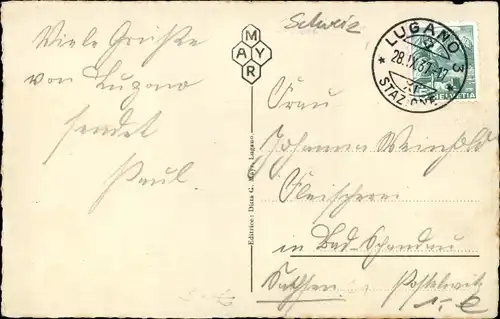 Viele Grüße
von Lugano
sendet
Paul
MAYR
Editrice: Ditta G. Mayr, Lugano.
Schweiz
LUGANO 3
STAZIONE
HELVETIA
Frau
Johanna Weinhold
Fleischerei
in Bad Schandau
Sachsen Postelwitz